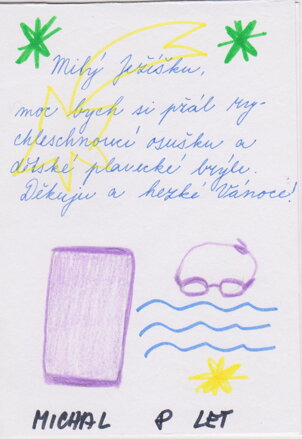 Milý Ježíšku,
moc bych si přál ry-
chleschnoucí osušku a
dětské plavecké brýle.
Děkuju a hezké Vánoce!
MICHAL 8 LET